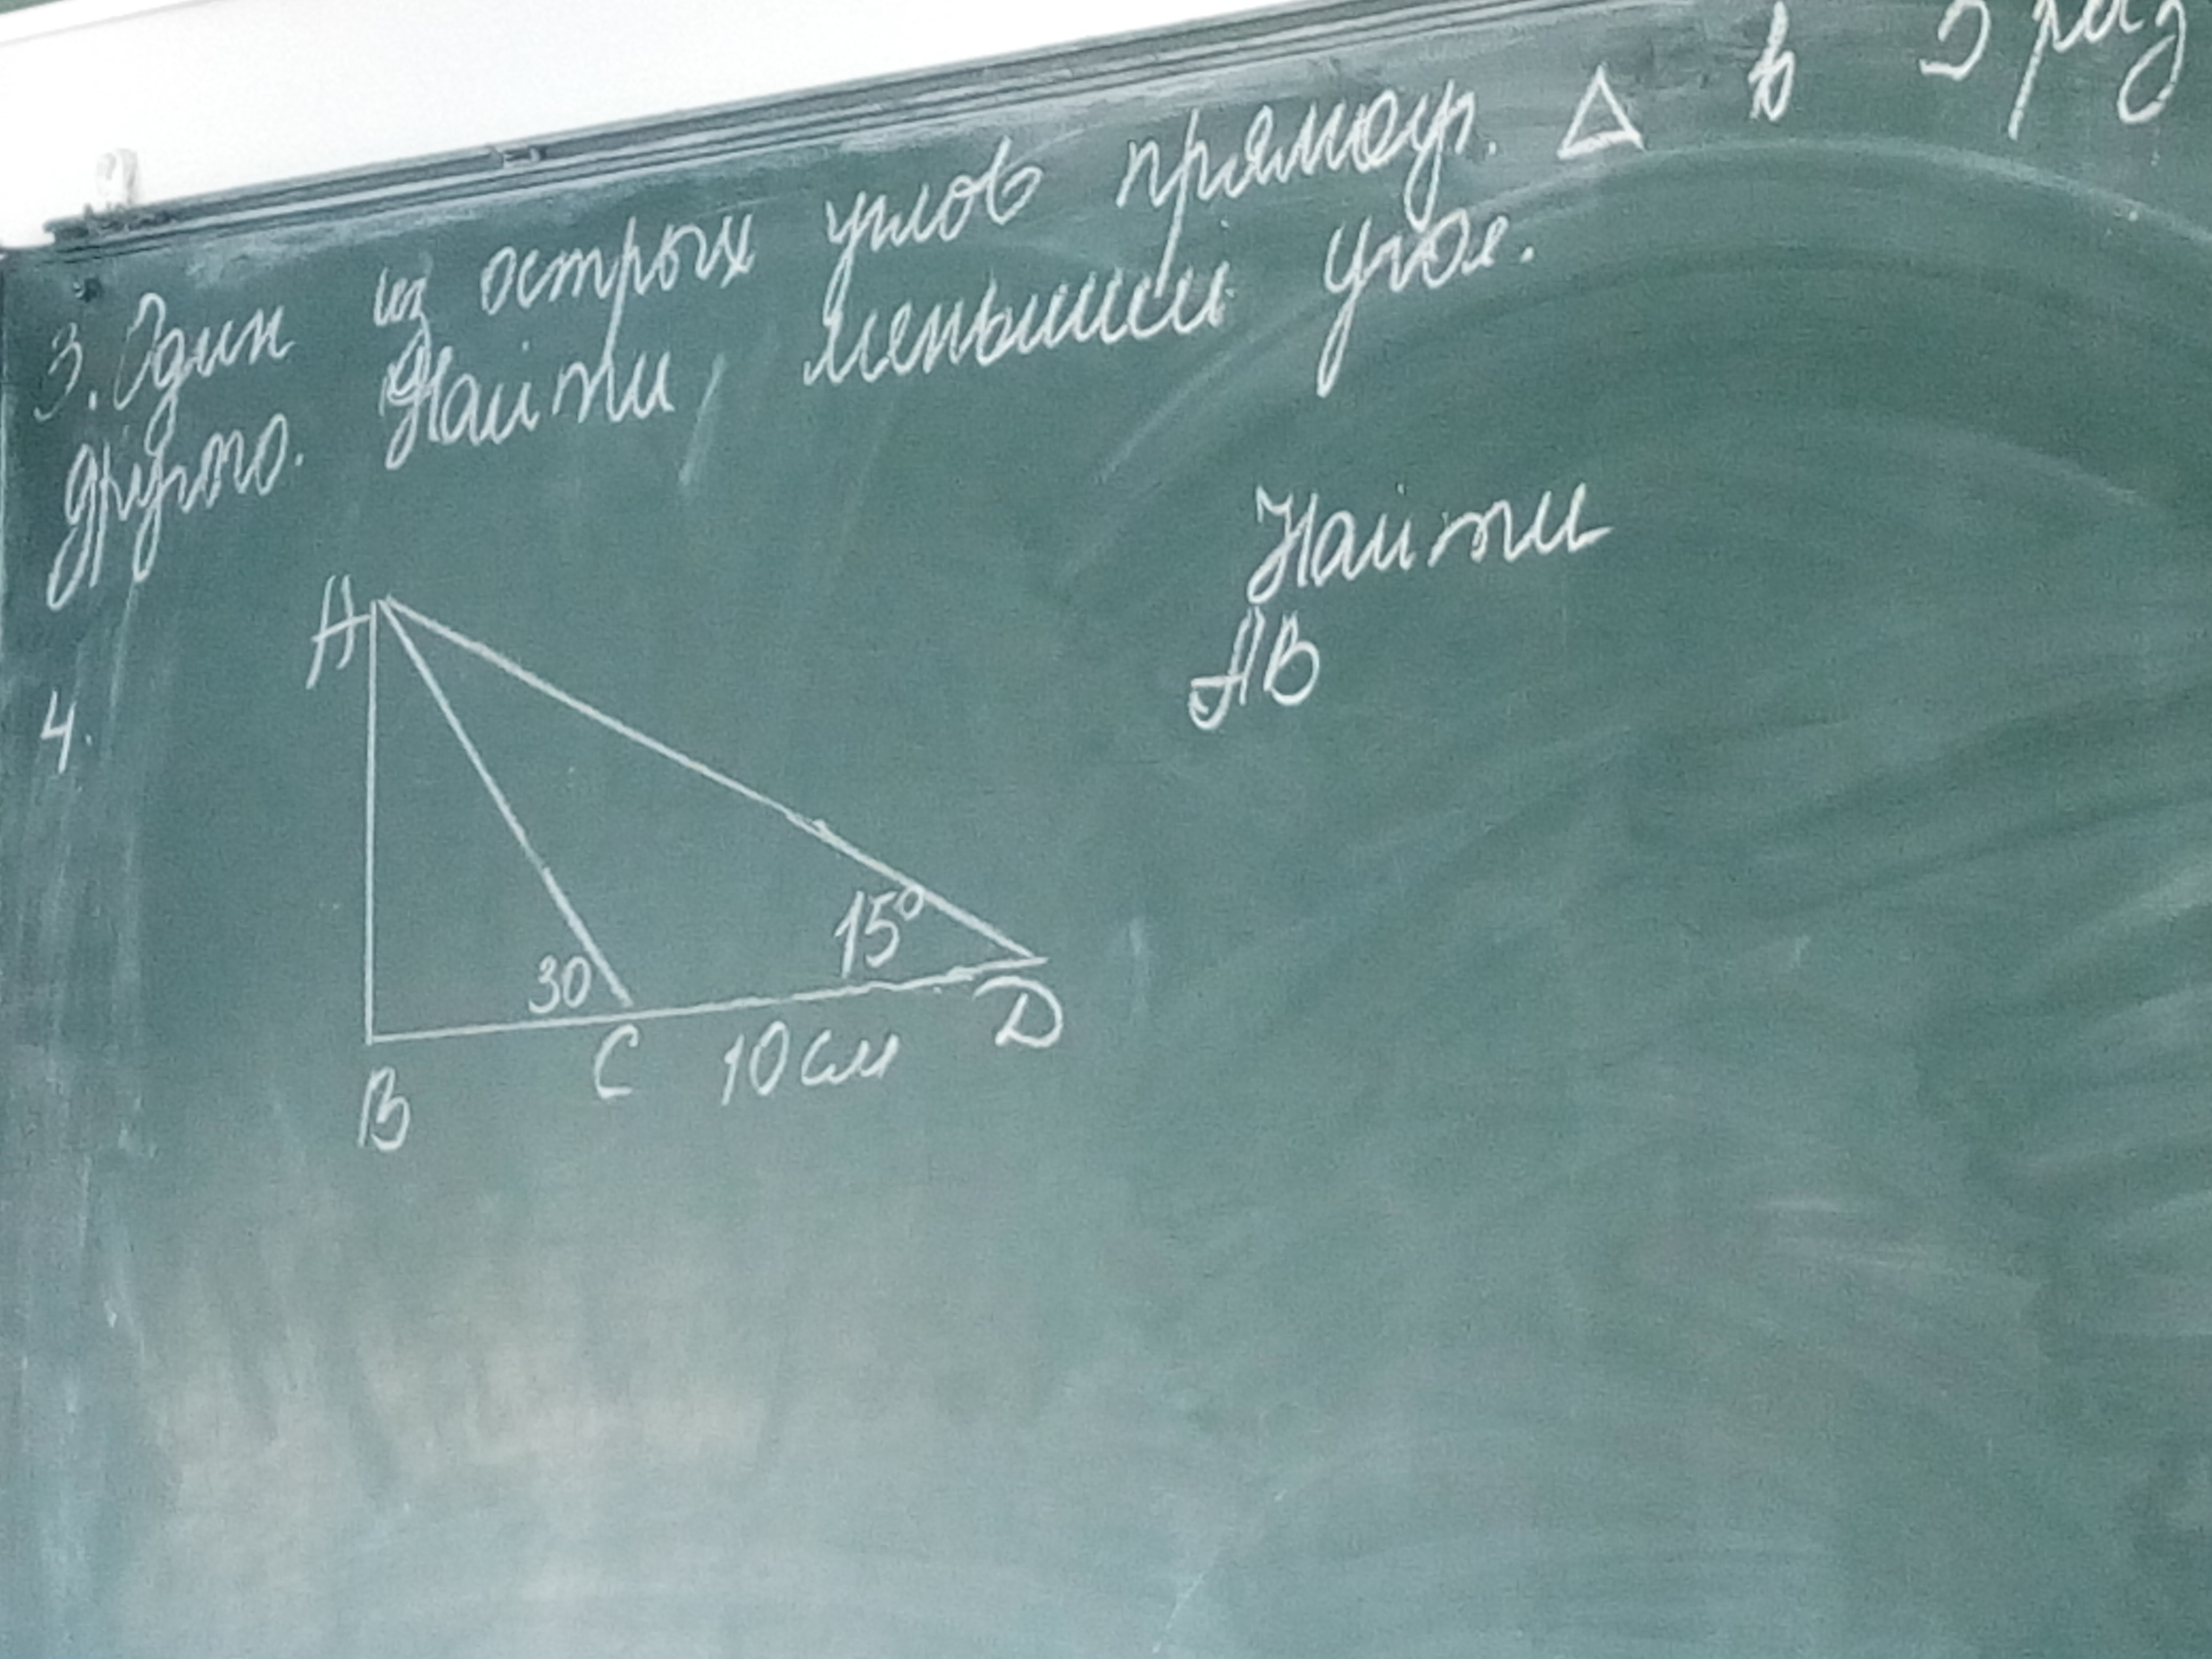 3. Один из острых углов прямоуг. △ в раз
другого. Найти меньший угол.
4.
Найти
AB
A
30
15°
B
C
10 см
D